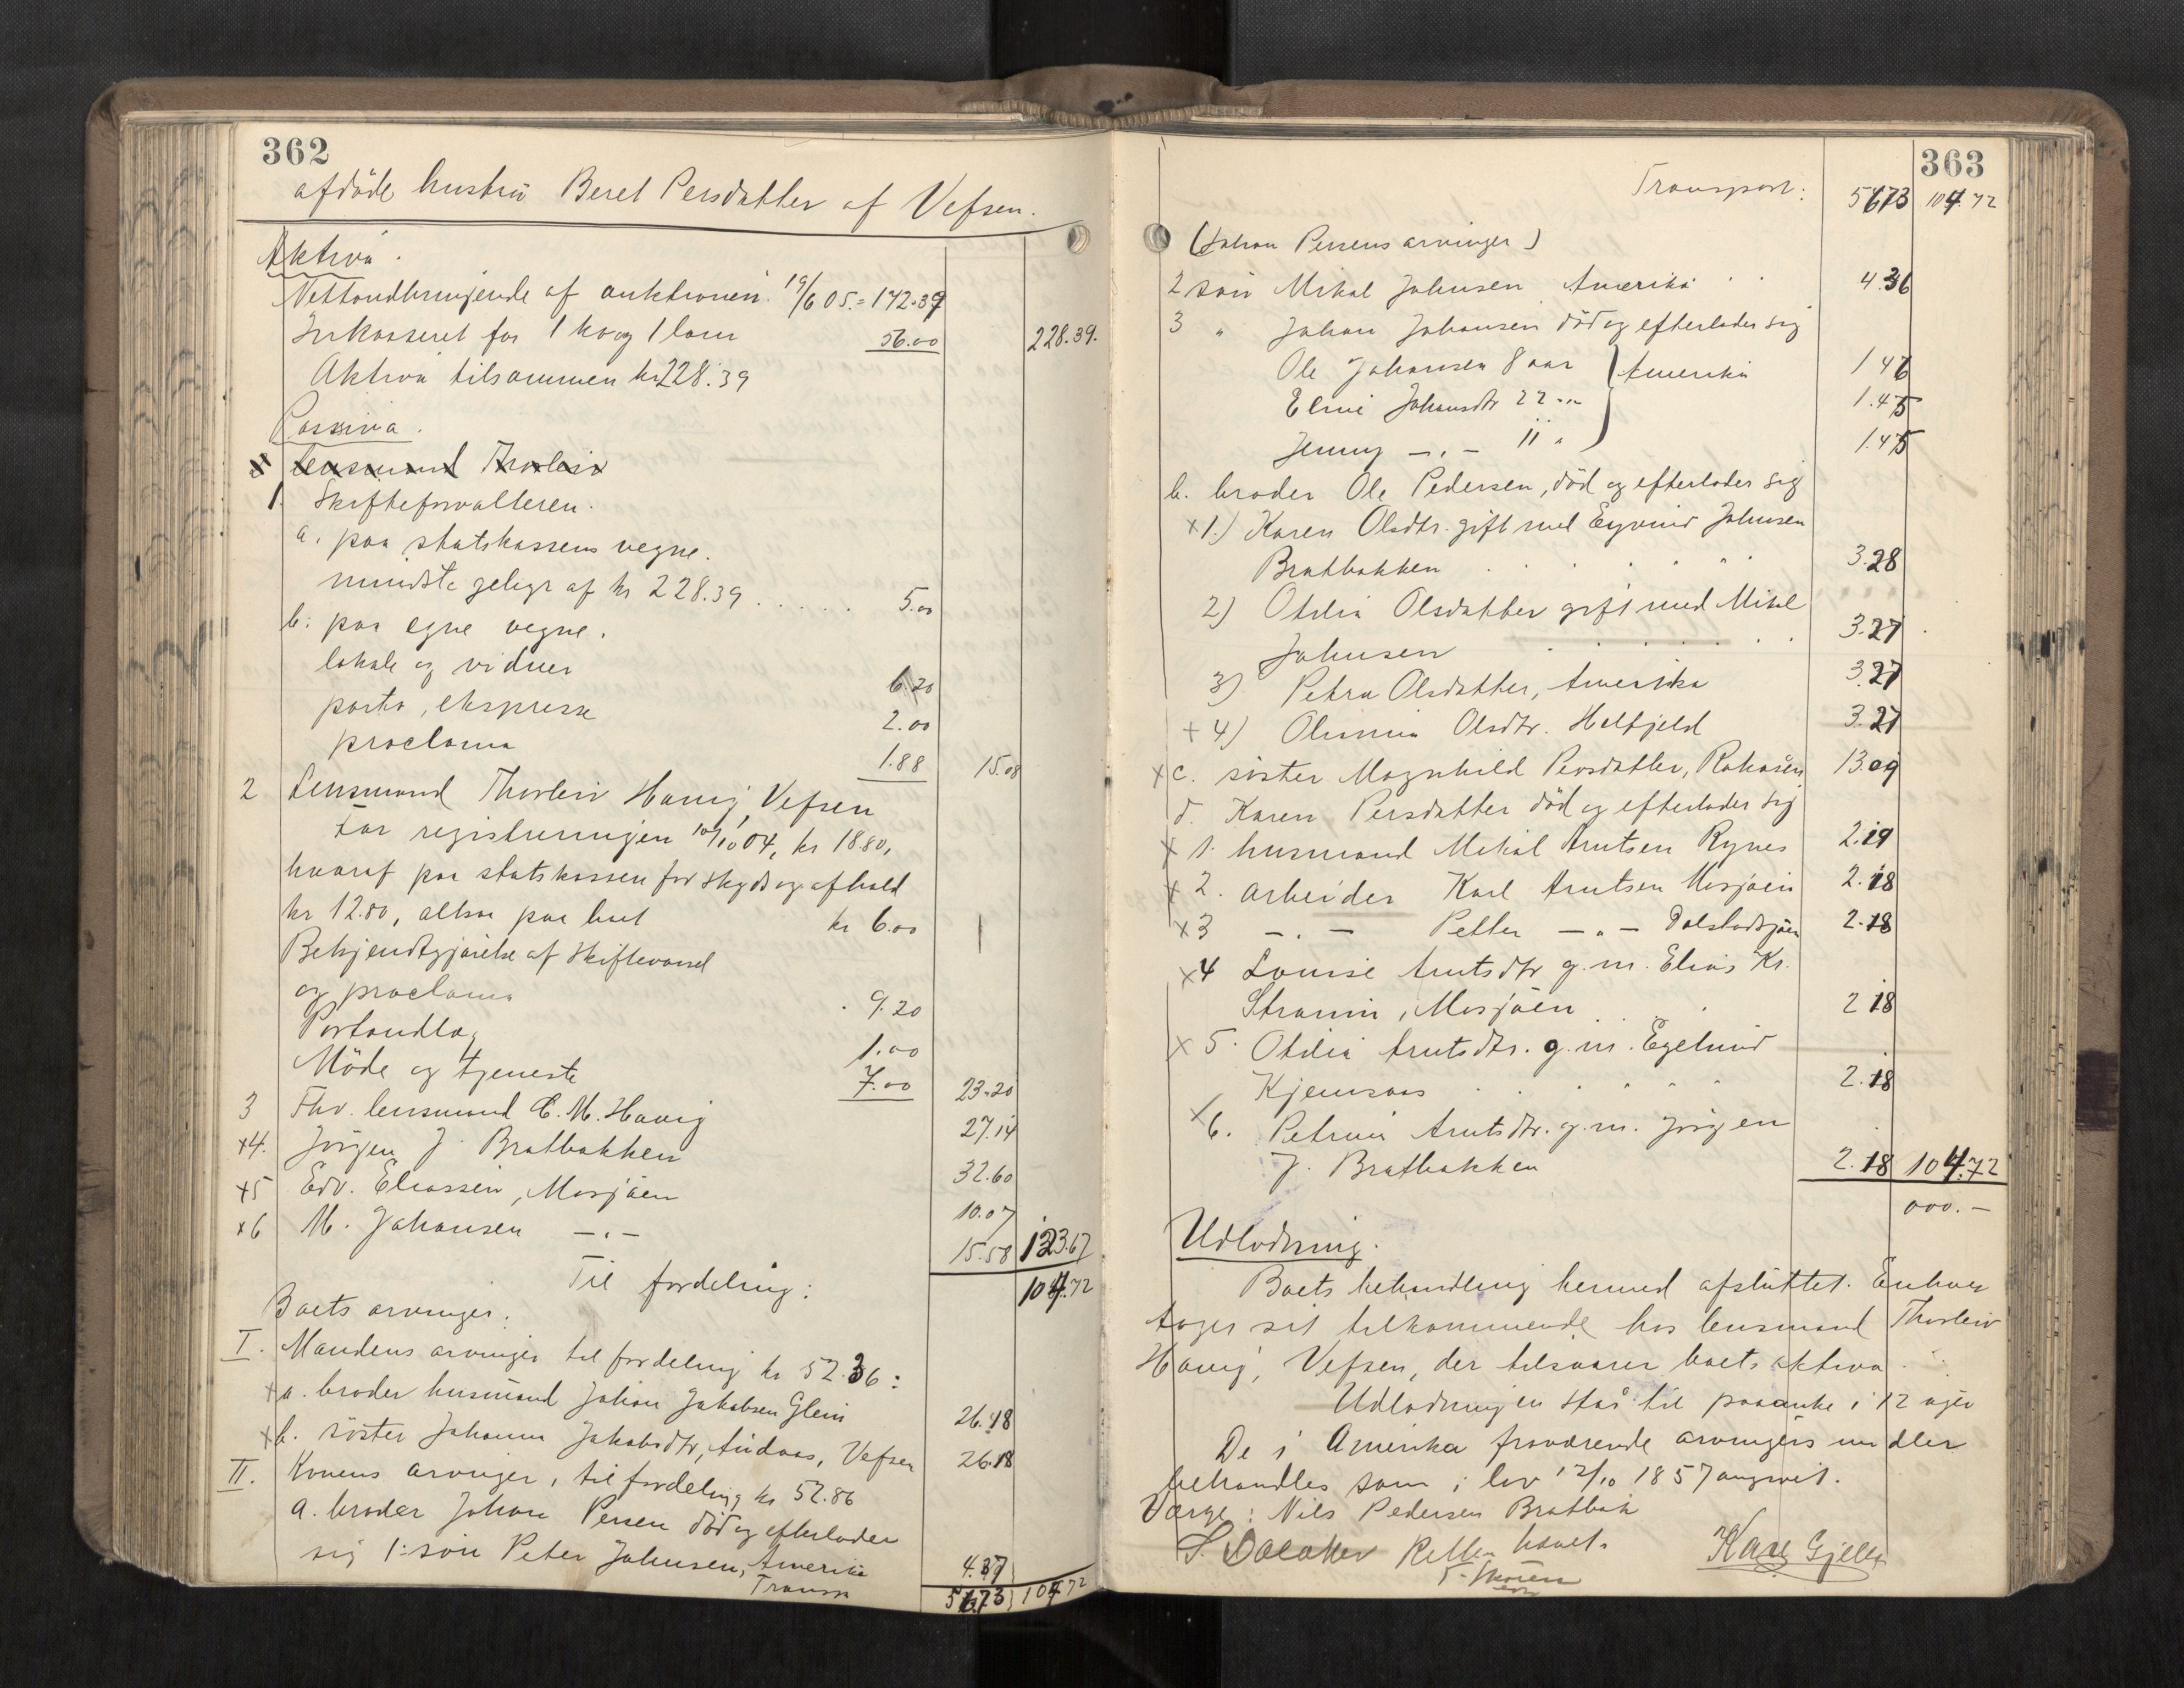 362
afdöde hustru Beret Persdatter af Vefsen.
Aktiva.
Nettoudbringende af auktionen 19/6 05 = 172.39
Inkasseret for 1 ko og 1 lam 56.00 228.39.
Aktiva tilsammen kr 228.39
Passiva.
Lensmand Thorleiv
1. Skifteforvalteren.
a. paa statskassens vegne.
mindste gebyr af kr 228.39 5.00
b: paa egne vegne.
lokale og vidner 6.20
porto, ekspresse 2.00
proclama 1.88 15.08
2 Lensmand Thorleiv Havig, Vefsen
For registreringen 10/10 04, kr 18.80,
hvoraf paa statskassen for skyds og ophold
kr 12.80, altsaa paa boet kr 6.00
Bekjendtgjörelse af skiftevarsel
og proclama 9.20
Portoudlæg 1.00
Möde og tjeneste 7.00 23.20
3 Fhv. lensmand C. M. Havig 27.14
x4. Jörgen J. Bratbakken 32.60
x5 Edv. Eliassen, Mosjöen 10.07
x6 M. Johansen —„— 15.58 123.67
Til fordeling: 104.72
Boets arvinger.
I. Mandens arvinger til fordeling kr 52.36:
xa. broder husmand Johan Jakobsen Glein 26.18
xb. söster Johanna Jakobsdtr, Andaas, Vefsen 26.18
II. Konens arvinger, til fordeling kr 52.36
a. broder Johan Persen död og efterlader
sig 1: sön Peter Johnsen, Amerika 4.37
Transp 56.73 104.72
363
Transport: 56.73 104.72
(Johan Persens arvinger)
2 sön Mikal Johnsen Amerika 4.36
3 „ Johan Johansen död og efterlader sig
Ole Johansen 8 aar } Amerika 1.46
Eline Johansdtr 22 „ 1.45
Jenny —„— 11 „ 1.45
b. broder Ole Pedersen, död og efterlader sig
x1.) Karen Olsdtr. gift med Eyvind Johnsen
Bratbakken 3.28
2) Otelia Olsdatter gift med Mikal
Johnsen 3.27
3) Petra Olsdatter, Amerika 3.27
x4) Olumia Olsdtr. Helfjeld 3.27
xc. söster Magnhild Persdatter, Rakaasen 13.09
d. Karen Persdatter död og efterlader sig
x1. husmand Mikal Arntsen Rynes 2.19
x2. arbeider Karl Arntsen Mosjöen 2.18
x3 —„— Petter —„— Dolstadsjöen 2.18
x4 Louise Arntsdtr g.m. Elias Kr.
Straum, Mosjöen 2.18
x5. Otelia Arntsdtr. g.m. Egelund
Kjemsaas 2.18
x6. Petrine Arntsdtr. g.m. Jörgen
J. Bratbakken 2.18 104.72
000.—
Udlodning.
Boets behandling hermed afsluttet. Enhver
tager sit tilkommende hos lensmand Thorleiv
Havig, Vefsen, der tilsvarer boets aktiva.
Udlodningen staar til paaanke i 12 uger
De i Amerika fraværende arvingers midler
behandles som i lov 12/10 1857 angivet.
Værge: Nils Pedersen Bratbak